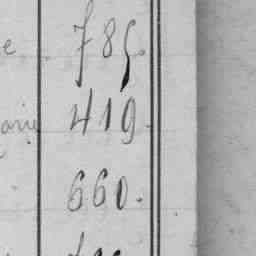 e 785.
arie 419.
660.